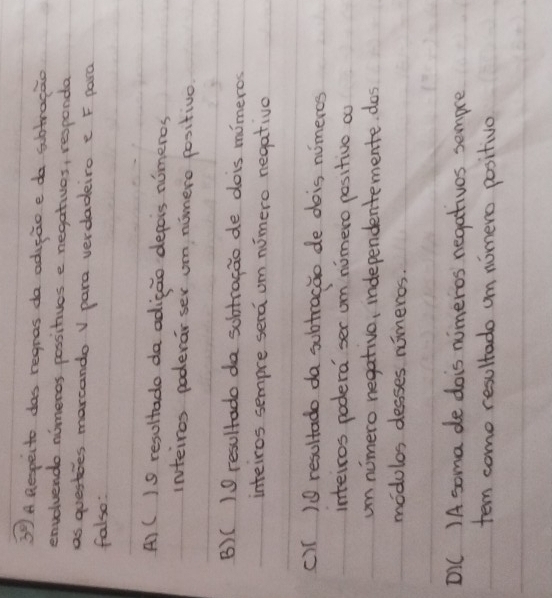 3º) A Respeito das regras da adição e da subtração
envolvendo números positivos e negativos, responda
as questões marcando V para verdadeiro e F para
falso:
A) ( ) O resultado da adição depois números
inteiros poderár ser um número positivo.
B) ( ) O resultado da subtração de dois números
inteiros sempre será um número negativo
C) ( ) O resultado da subtração de dois números
inteiros poderá ser um número positivo ou
um número negativo, independentemente dos
módulos desses números.
D) ( ) A soma de dois números negativos sempre
tem como resultado um número positivo